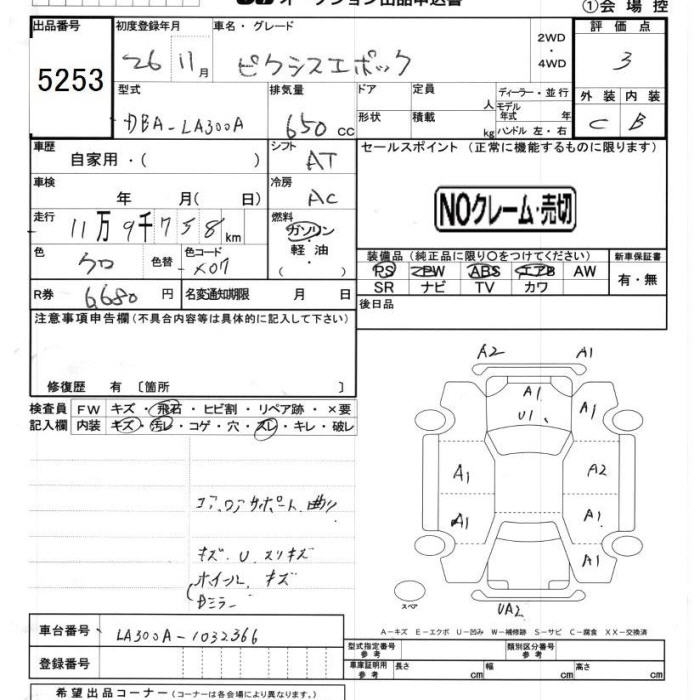 オークション出品申込書
①会場控
出品番号 初度登録年月 車名・グレード 評価点
5253 26 11月 ピクシスエポック 2WD・4WD 3
型式 排気量 ドア 定員 人 ディーラー・並行 外装 内装
DBA-LA300A 650 cc 形状 積載 kg モデル年式 年 ハンドル 左・右 C B
車歴 シフト セールスポイント (正常に機能するものに限ります)
自家用・( ) AT
車検 冷房
年 月( 日) AC NOクレーム・売切
走行 燃料
11万9千758km ガソリン・軽油・( )
色 色替 色コード 装備品(純正品に限り○をつけてください) 新車保証書
クロ X07 PS PW ABS エアB AW 有・無
SR ナビ TV カワ
R券 6,680円 名変通知期限 月 日 後日品
注意事項申告欄(不具合内容等は具体的に記入して下さい)
修復歴 有 〔箇所 〕
検査員記入欄 FW キズ・飛石・ヒビ割・リペア跡・×要
内装 キズ・汚レ・コゲ・穴・スレ・キレ・破レ
A2 A1
A1 U1 A1
A1 A2
A1 A1
A1
UA2
コア サポート 曲り
キズ U スリキズ
ホイール キズ
Dミラー
スペア
A-キズ E-エクボ U-凹み W-補修跡 S-サビ C-腐食 XX-交換済
車台番号 LA300A-1032366
登録番号
型式指定番号 参考 類別区分番号 参考
車庫証明用 参考 長さ cm 幅 cm 高さ cm
希望出品コーナー(コーナーは各会場により異なります。)